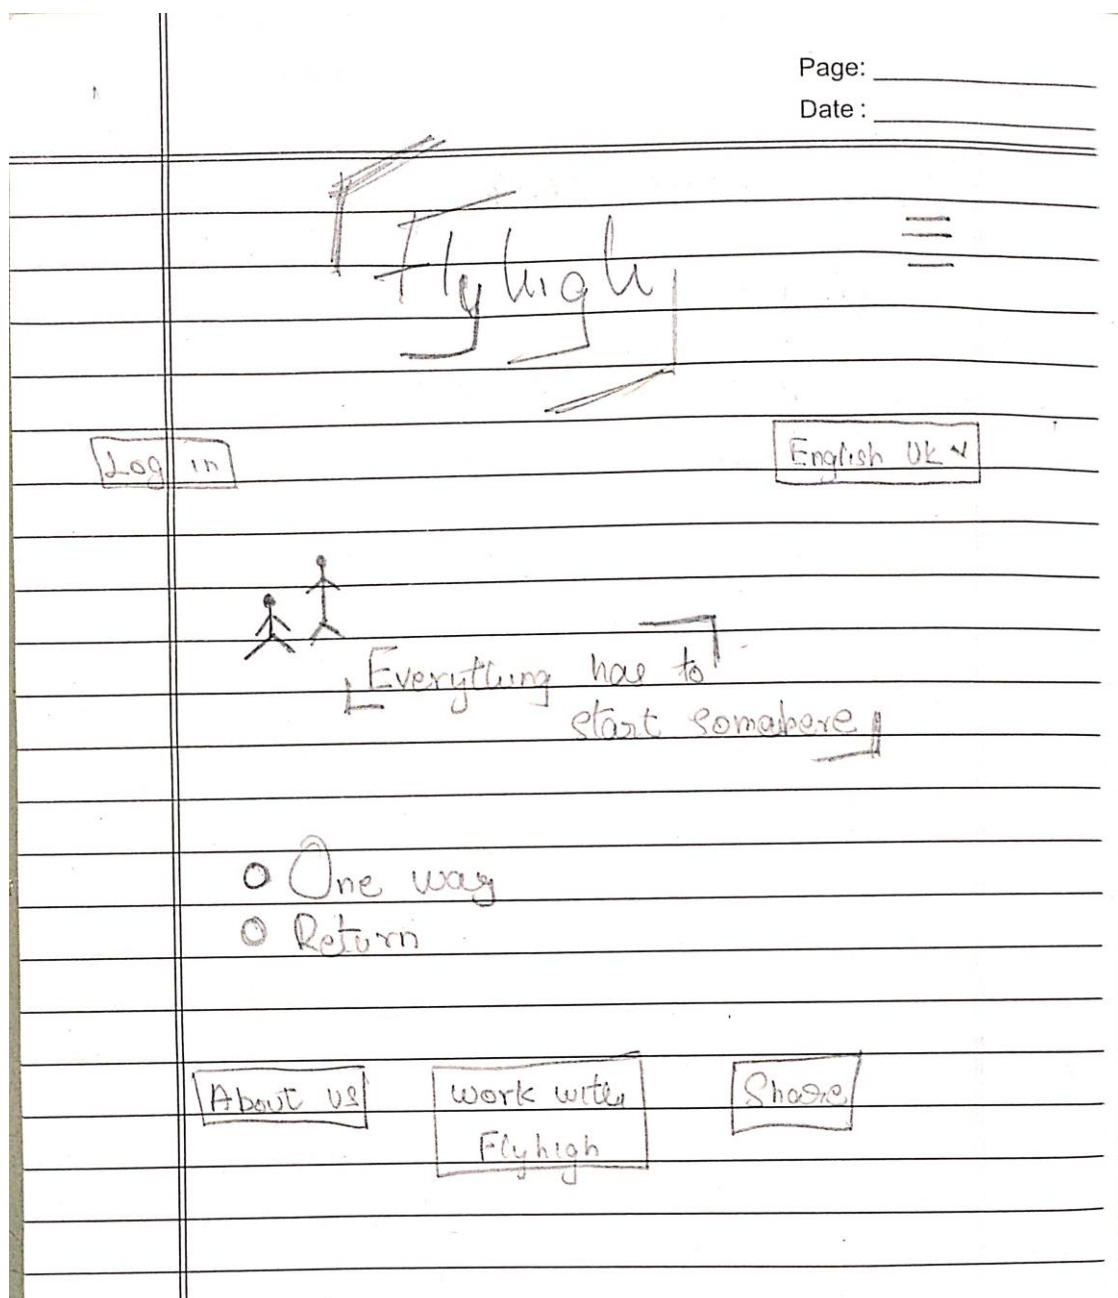 Page:
Date :
Flyhigh
Log in
English Uk
Everything has to
start somabere
One way
Return
About us
Work with
Flyhigh
Share